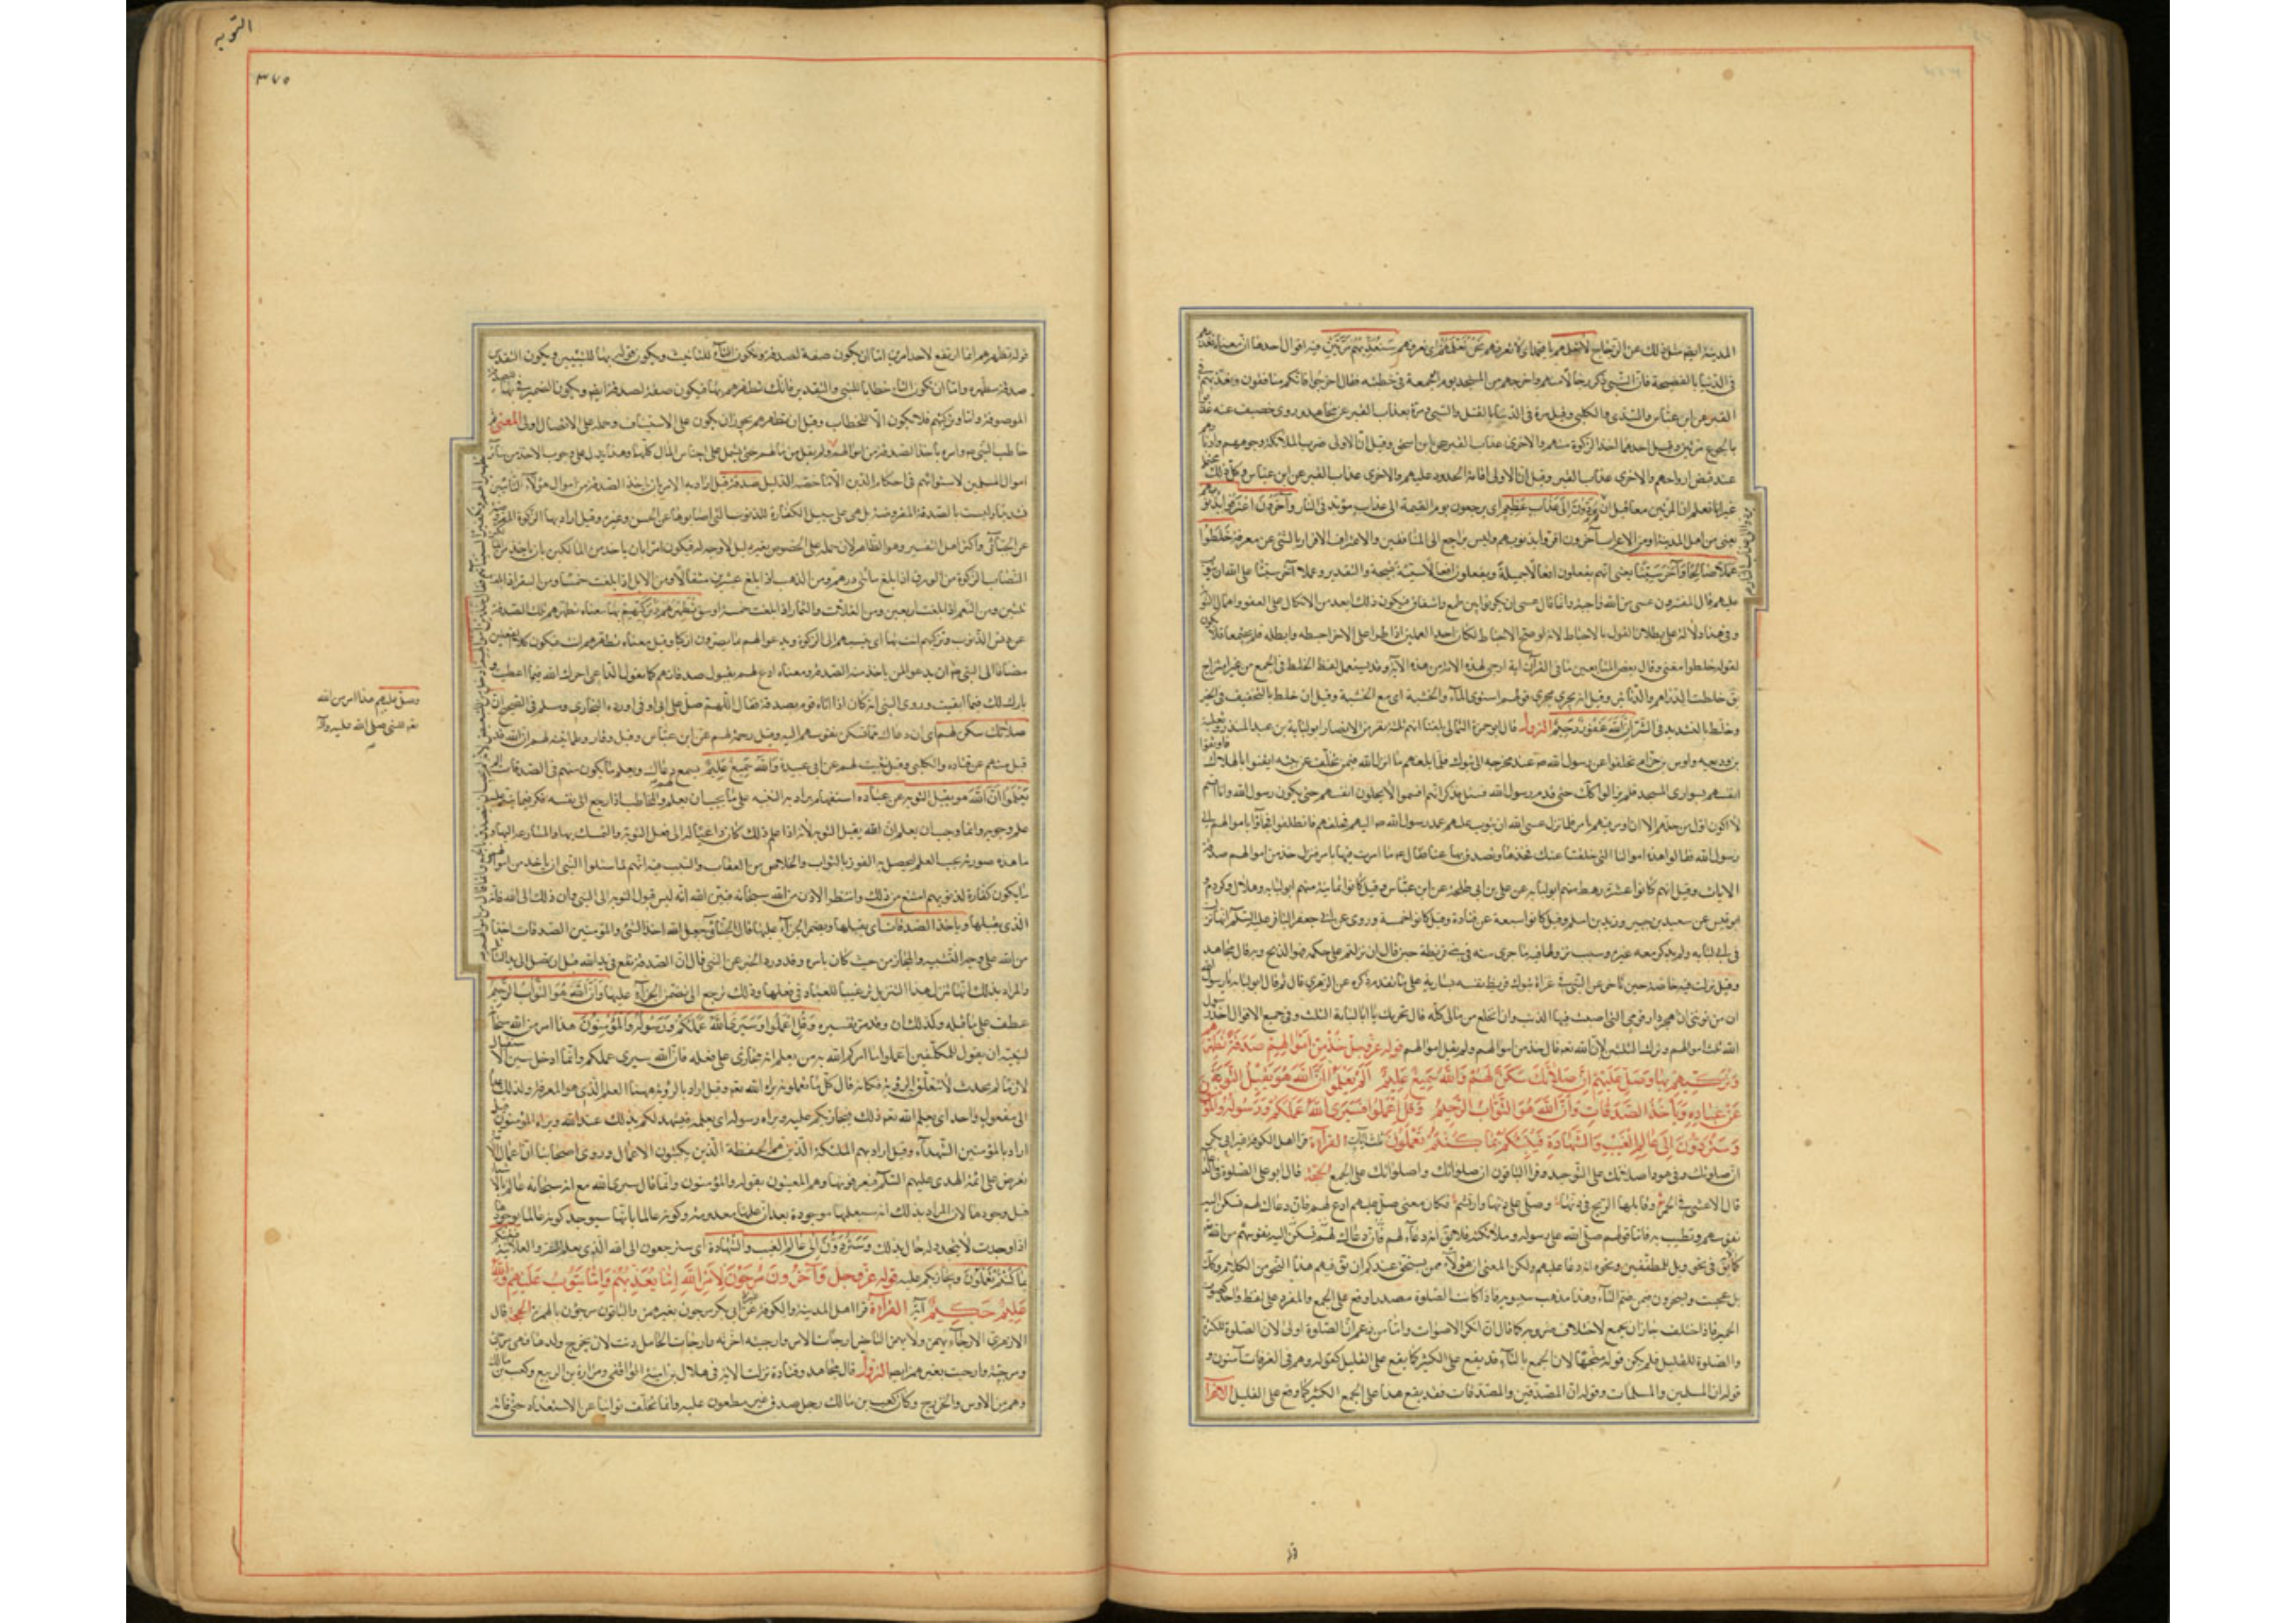 المدينة ايضا مثل ذلك عن الزجاج لا تعلمهم يا محمد اى لا تعرفهم نحن نعلمهم اى نعرفهم سنعذبهم مرتين فيه اقوال احدها ان معناه نعذبهم
فى الدنيا بالفضيحة فان النبى ذكر رجالا منهم واخرجهم من المسجد يوم الجمعة فى خطبته فقال اخرجوا فانكم منافقون ونعذبهم فى
القبر عن ابن عباس والسدى والكلبى وقيل مرة فى الدنيا بالقتل والسبى ومرة بعذاب القبر عن مجاهد وروى خصيف عنه عذبوا
بالجوع مرتين وقيل احدهما اخذ الزكوة منهم والاخرى عذاب القبر عن ابن اسحق وقيل ان الاولى ضرب الملائكة وجوههم وادبارهم
عند قبض ارواحهم والاخرى عذاب القبر وقيل ان الاولى اقامة الحدود عليهم والاخرى عذاب القبر عن ابن عباس وكل ذلك محتمل
غير انا نعلم ان المرتين معا قبل ان يردون الى عذاب عظيم اى يرجعون يوم القيمة الى عذاب مؤبد فى النار وآخرون اعترفوا بذنوبهم
يعنى من اهل المدينة او من الاعراب آخرون اقروا بذنوبهم وليس براجع الى المنافقين والاعتراف الاقرار بالشئ عن معرفة خلطوا
عملا صالحا وآخر سيئا يعنى انهم يفعلون افعالا جميلة ويفعلون افعالا سيئة قبيحة والتقدير وعملا آخر سيئا عسى الله ان يتوب
عليهم قال المفسرون عسى من الله واجبة وانما قال عسى ان يكونوا بين طمع واشفاق فيكون ذلك ابعد من الاتكال على العفو واهمال التوبة
وفى هذا دلالة على بطلان القول بالاحباط لانه لو صح الاحباط لكان احد العملين اذا طرأ على الاخر احبطه وابطله فلم يجتمعا فلا يكون
لقوله خلطوا معنى وقال بعض التابعين ما فى القرآن آية ارجى لهذه الامة من هذه الآية وقد يستعمل لفظ الخلط فى الجمع من غير امتزاج
يق خلطت الدراهم والدنانير وقيل انه يجرى مجرى قولهم استوى الماء والخشبة اى مع الخشبة وقيل ان خلط بالتخفيف فى الخير
وخلط بالتشديد فى الشر ان الله غفور رحيم النزول قال ابو حمزة الثمالى بلغنا انهم ثلثة نفر من الانصار ابو لبابة بن عبد المنذر وثعلبة
بن وديعه واوس بن حزام تخلفوا عن رسول الله ص عند مخرجه الى تبوك فلما بلغهم ما انزل الله فيمن تخلف عن نبيه ايقنوا بالهلاك فاوثقوا
انفسهم بسوارى المسجد فلم يزالوا كك حتى قدم رسول الله فسئل فذكر انهم اقسموا لا يحلون انفسهم حتى يكون رسول الله وانا اقسم
لا اكون اول من حلهم الا ان اومر فيهم بامر فلما نزل عسى الله ان يتوب عليهم عمد رسول الله ص اليهم فحلهم فانطلقوا فجاؤا باموالهم الى
رسول الله فقالوا هذه اموالنا التى خلفتنا عنك فخذها وتصدق بها عنا فقال ع ما امرت فيها بامر فنزل خذ من اموالهم صدقة
الايات وقيل انهم كانوا عشرة رهط منهم ابو لبابه عن على بن ابى طلحة عن ابن عباس وقيل كانوا ثمانية منهم ابو لبابه وهلال وكردم و
ابو قيس عن سعيد بن جبير وزيد بن اسلم وقيل كانوا سبعة عن قتادة وقيل كانوا خمسة وروى عن ابى جعفر الباقر عليه السلم انها نزلت
فى ابى لبابه ولم يذكر معه غيره وسبب نزولها فيه ما جرى منه فى بنى قريظة حين قال ان نزلتم على حكمه فهو الذبح وبه قال مجاهد
وقيل نزلت فيه خاصة حين تاخر عن النبى فى غزاة تبوك فربط نفسه بسارية على ما تقدم ذكره عن الزهرى قال ثم قال ابو لبابه يا رسول الله
ان من توبتى ان اهجر دار قومى التى اصبت فيها الذنب وان انخلع من مالى كله قال تجزيك يا ابا لبابة الثلث وفى جميع الاقوال اخذ رسول
الله ثلث اموالهم وترك الثلثين لان الله تعم قال خذ من اموالهم ولم يقل اموالهم قوله عز وجل خذ من اموالهم صدقة تطهرهم
وتزكيهم بها وصل عليهم ان صلاتك سكن لهم والله سميع عليم الم يعلموا ان الله هو يقبل التوبة
عن عباده ويأخذ الصدقات وان الله هو التواب الرحيم وقل اعملوا فسيرى الله عملكم ورسوله والمؤمنون
وستردون الى عالم الغيب والشهادة فينبئكم بما كنتم تعملون ثلث ايات القراءة قرأ اهل الكوفة غير ابى بكر
ان صلوتك وفى هود اصلاتك على التوحيد وقرأ الباقون ان صلواتك واصلواتك على الجمع الحجة قال ابو على الصلوة فى اللغة الدعاء
قال الاعشى فى الخمر وقابلها الريح فى دنها وصلى على دنها وارتسم فكان معنى صل عليهم ادع لهم فان دعاك لهم تسكن اليه
نفوسهم وتطيب به فاما قولهم صلى الله على رسوله وملائكته فلا يق انه دعاء لهم
كما يق فى نحو ويل للمطففين ونحوه انه دعا عليهم ولكن المعنى ان هؤلاء ممن يستحق عندكم ان يق فيهم هذا النحو من الكلام وكك
بل عجبت ويسخرون فيمن ضم التاء وهذا مذهب سيبويه فاذا كانت الصلوة مصدرا وقع على الجمع والمفرد على لفظ واحد كصوت
الحمير فاذا اختلف جاز ان يجمع لاختلاف ضروبه كما قال ان انكر الاصوات واما من زعم ان الصلوة اولى لان الصلوة للكثرة
والصلوة للقليل فلم يكن قوله متجها لان الجمع بالتاء قد يقع على الكثير كما يقع على القليل كقوله وهم فى الغرفات آمنون و
قوله ان المسلمين والمسلمات وقوله ان المصدقين والمصدقات فقد يقع هذا على الجمع الكثير كما وقع على القليل الاعراب
التوبه
٣٧٥
قوله تطهرهم اما ان يكون صفة لصدقة ويكون التاء للتأنيث ويكون قوله بها للتبيين ويكون التقدير
صدقة مطهرة واما ان تكون التاء خطابا للنبى والتقدير فانك تطهرهم بها فيكون صفة لصدقة ايضا ويكون الضمير فى بها للصدقة
الموصوفة واما وتزكيهم فلا يكون الا للخطاب وقيل ان تطهرهم يجوز ان يكون على الاستيناف وحمله على الاتصال اولى المعنى ثم
خاطب النبى ص وامره بأخذ الصدقة من اموالهم ولم يقل من مالهم حتى يشتمل على اجناس المال كلها وهذا يدل على وجوب الاخذ من سائر
اموال المسلمين لاستوائهم فى احكام الدين الا ما خصه الدليل صدقة قيل اراد به الامر بان يأخذ الصدقة من اموال هؤلاء التائبين
وليست بالصدقة المفروضة بل هى على سبيل الكفارة للذنوب التى اصابوها عن الحسن وغيره وقيل اراد بها الزكوة المفروضة
عن الجبائى واكثر اهل التفسير وهو الظاهر لان حمله على الخصوص بغير دليل لا وجه له فيكون امر بان يأخذ من المالكين
النصاب الزكوة من الورق اذا بلغ مائتى درهم ومن الذهب اذا بلغ عشرين مثقالا ومن الابل اذا بلغت خمسا ومن البقر اذا بلغت
ثلثين ومن الغنم اذا بلغت اربعين ومن الغلات والثمار اذا بلغت خمسة اوسق تطهرهم وتزكيهم بها معناه تطهرهم تلك الصدقة
عن دنس الذنوب وتزكيهم انت بها اى تنسبهم الى الزكوة وتدعو لهم بما يصيرون به ازكيا وقيل معناه تطهرهم انت
ان يدعو لمن يأخذ منه الصدقة ومعناه ادع لهم بقبول صدقاتهم كما يقول الداعى اجرك الله فيما اعطيت و
بارك لك فيما ابقيت وروى النبى انه كان اذا اتاه قوم بصدقة قال اللهم صل على ال ابى اوفى اورده البخارى ومسلم فى الصحيح ان
صلاتك سكن لهم اى ان دعاك مما تسكن نفوسهم اليه وقيل رحمة لهم عن ابن عباس وقيل وقار وطمانينة لهم ان الله قد
قبل منهم عن قتاده والكلبى وقيل تثبيت لهم عن ابى عبيدة والله سميع عليم يسمع دعاك ويعلم ما يكون منهم فى الصدقات الم
يعلموا ان الله هو يقبل التوبة عن عباده استفهام يراد به التنبيه على ما يجب ان يعلم والمخاطب اذا رجع الى نفسه فكر فيما نبه عليه
علم وجوبه وانما وجب ان يعلم ان الله يقبل التوبة لانه اذا علم ذلك كان داعيا له الى فعل التوبة والتمسك بها والمسارعة اليها و
ما هذه صورته يجب العلم به ليحصل به الفوز بالثواب والخلاص من العقاب والسبب فيه انهم لما سئلوا النبى ان يأخذ من اموالهم
ما يكون كفارة لذنوبهم امتنع من ذلك وانتظر الاذن من الله سبحانه فبين الله انه ليس قبول التوبة الى النبى وان ذلك الى الله فانه
الذى يقبلها ويأخذ الصدقات اى يقبلها ويضمن الجزاء عليها قال الجبائى جعل الله اخذ النبى والمؤمنين الصدقات اخذا
من الله على وجه التشبيه والمجاز من حيث كان بامره وقد ورد الخبر عن النبى قال ان الصدقة تقع فى يد الله قبل ان تصل الى يد السائل
والمراد بذلك انها تنزل هذا التنزيل ترغيبا للعباد فى فعلها وذلك يرجع الى تضمن الجزاء عليها وان الله هو التواب الرحيم
عطف على ما قبله ولذلك ان وقد مر تفسيره وقل اعملوا فسيرى الله عملكم ورسوله والمؤمنون هذا امر من الله سبحانه
لنبيه ان يقول للمكلفين اعملوا ما امركم الله به من يعلم انه مجازى على فعله فان الله سيرى عملكم وانما ادخل سين الاستقبال
لان ما لم يحدث لا تتعلق الرؤية به فكانه قال كل ما تعملونه يراه الله تعم وقيل اراد بالرؤية ههنا العلم الذى هو المعرفة ولذلك عداه
الى مفعول واحد اى يعلم الله تعم ذلك فيجازيكم عليه ويراه رسوله اى يعلمه فيشهد لكم بذلك عند الله ويراه المؤمنون قيل
اراد بالمؤمنين الشهداء وقيل اراد بهم الملئكة الذين هم الحفظة الذين يكتبون الاعمال وروى اصحابنا ان اعمال الامة
تعرض على ائمة الهدى عليهم السلم فيعرفونها وهم المعنيون بقوله والمؤمنون وانما قال سيرى الله مع انه سبحانه عالم بالاشياء
قبل وجودها لان المراد بذلك انه سيعلمها موجودة بعد ان علمها معدومة وكونه عالما بانها سيوجد كونه عالما بوجودها
اذا وجدت لا يتجدد له حال بذلك وستردون الى عالم الغيب والشهادة اى سترجعون الى الله الذى يعلم السر والعلانية فينبئكم
بما كنتم تعملون ويجازيكم عليه قوله عز وجل وآخرون مرجون لامر الله اما يعذبهم واما يتوب عليهم والله
عليم حكيم آية القراءة قرا اهل المدينة والكوفة غير ابى بكر مرجون بغير همز والباقون مرجؤن بالهمزة الحجة قال
الازهرى الارجاء يهمز ولا يهمز ارجات الامر وارجيته اخرته وارجات الحامل دنت لان يخرج ولدها فهى مرجئ
ومرجئة وارجت بغير همز ايضا النزول قال مجاهد وقتادة نزلت الاية فى هلال بن امية الواقفى ومرارة بن الربيع وكعب بن مالك
وهم من الاوس والخزرج وكان كعب بن مالك رجل صدق غير مطعون عليه وانما تخلف توانيا عن الاستعداد حتى فاته
وصل عليهم هذا امر من الله
تعم للنبى صلى الله عليه وآله